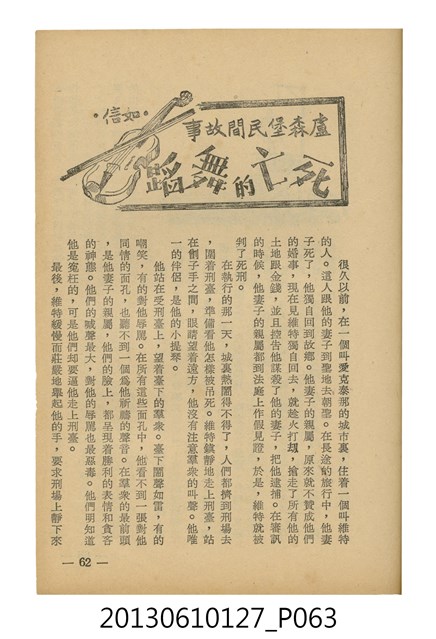 盧森堡民間故事
死亡的舞蹈
•如信•
很久以前，在一個叫愛克泰那的城市裏，住着一個叫維特
的人。這人跟他的妻子到聖地去朝聖。在長途的旅行中，他妻
子死了，他獨自回到故鄉。他妻子的親屬，原來就不贊成他們
的婚事，現在見維特獨自回去，就趁火打刼，搶走了所有他的
土地跟金錢，並且控告他謀殺了他的妻子，把他逮捕。在審訊
的時候，他妻子的親屬都到法庭上作假見證，於是，維特就被
判了死刑。
在執行的那一天，城裏熱鬧得不得了，人們都擠到刑場去
，圍着刑臺，準備看他怎樣被吊死。維特鎮靜地走上刑臺，站
在劊子手之間，眼睛望着遠方，他沒有注意羣衆的叫聲。他唯
一的伴侶，是他的小提琴。
他站在受刑臺上，望着臺下的羣衆。臺下鬧聲如雷，有的
嘲笑，有的對他辱罵。在所有這些面孔中，他看不到一張對他
同情的面孔，也聽不到一個爲他祈禱的聲音。在羣衆的最前頭
，是他妻子的親屬，他們的臉上，都呈現着勝利的表情和貪吝
的神態。他們的喊聲最大，對他的辱罵也最惡毒。他們明知道
他是寃枉的，可是他們却要逼他走上刑臺。
最後，維特緩慢而莊嚴地舉起他的手，要求刑場上靜下來
— 62 —
20130610127_P063